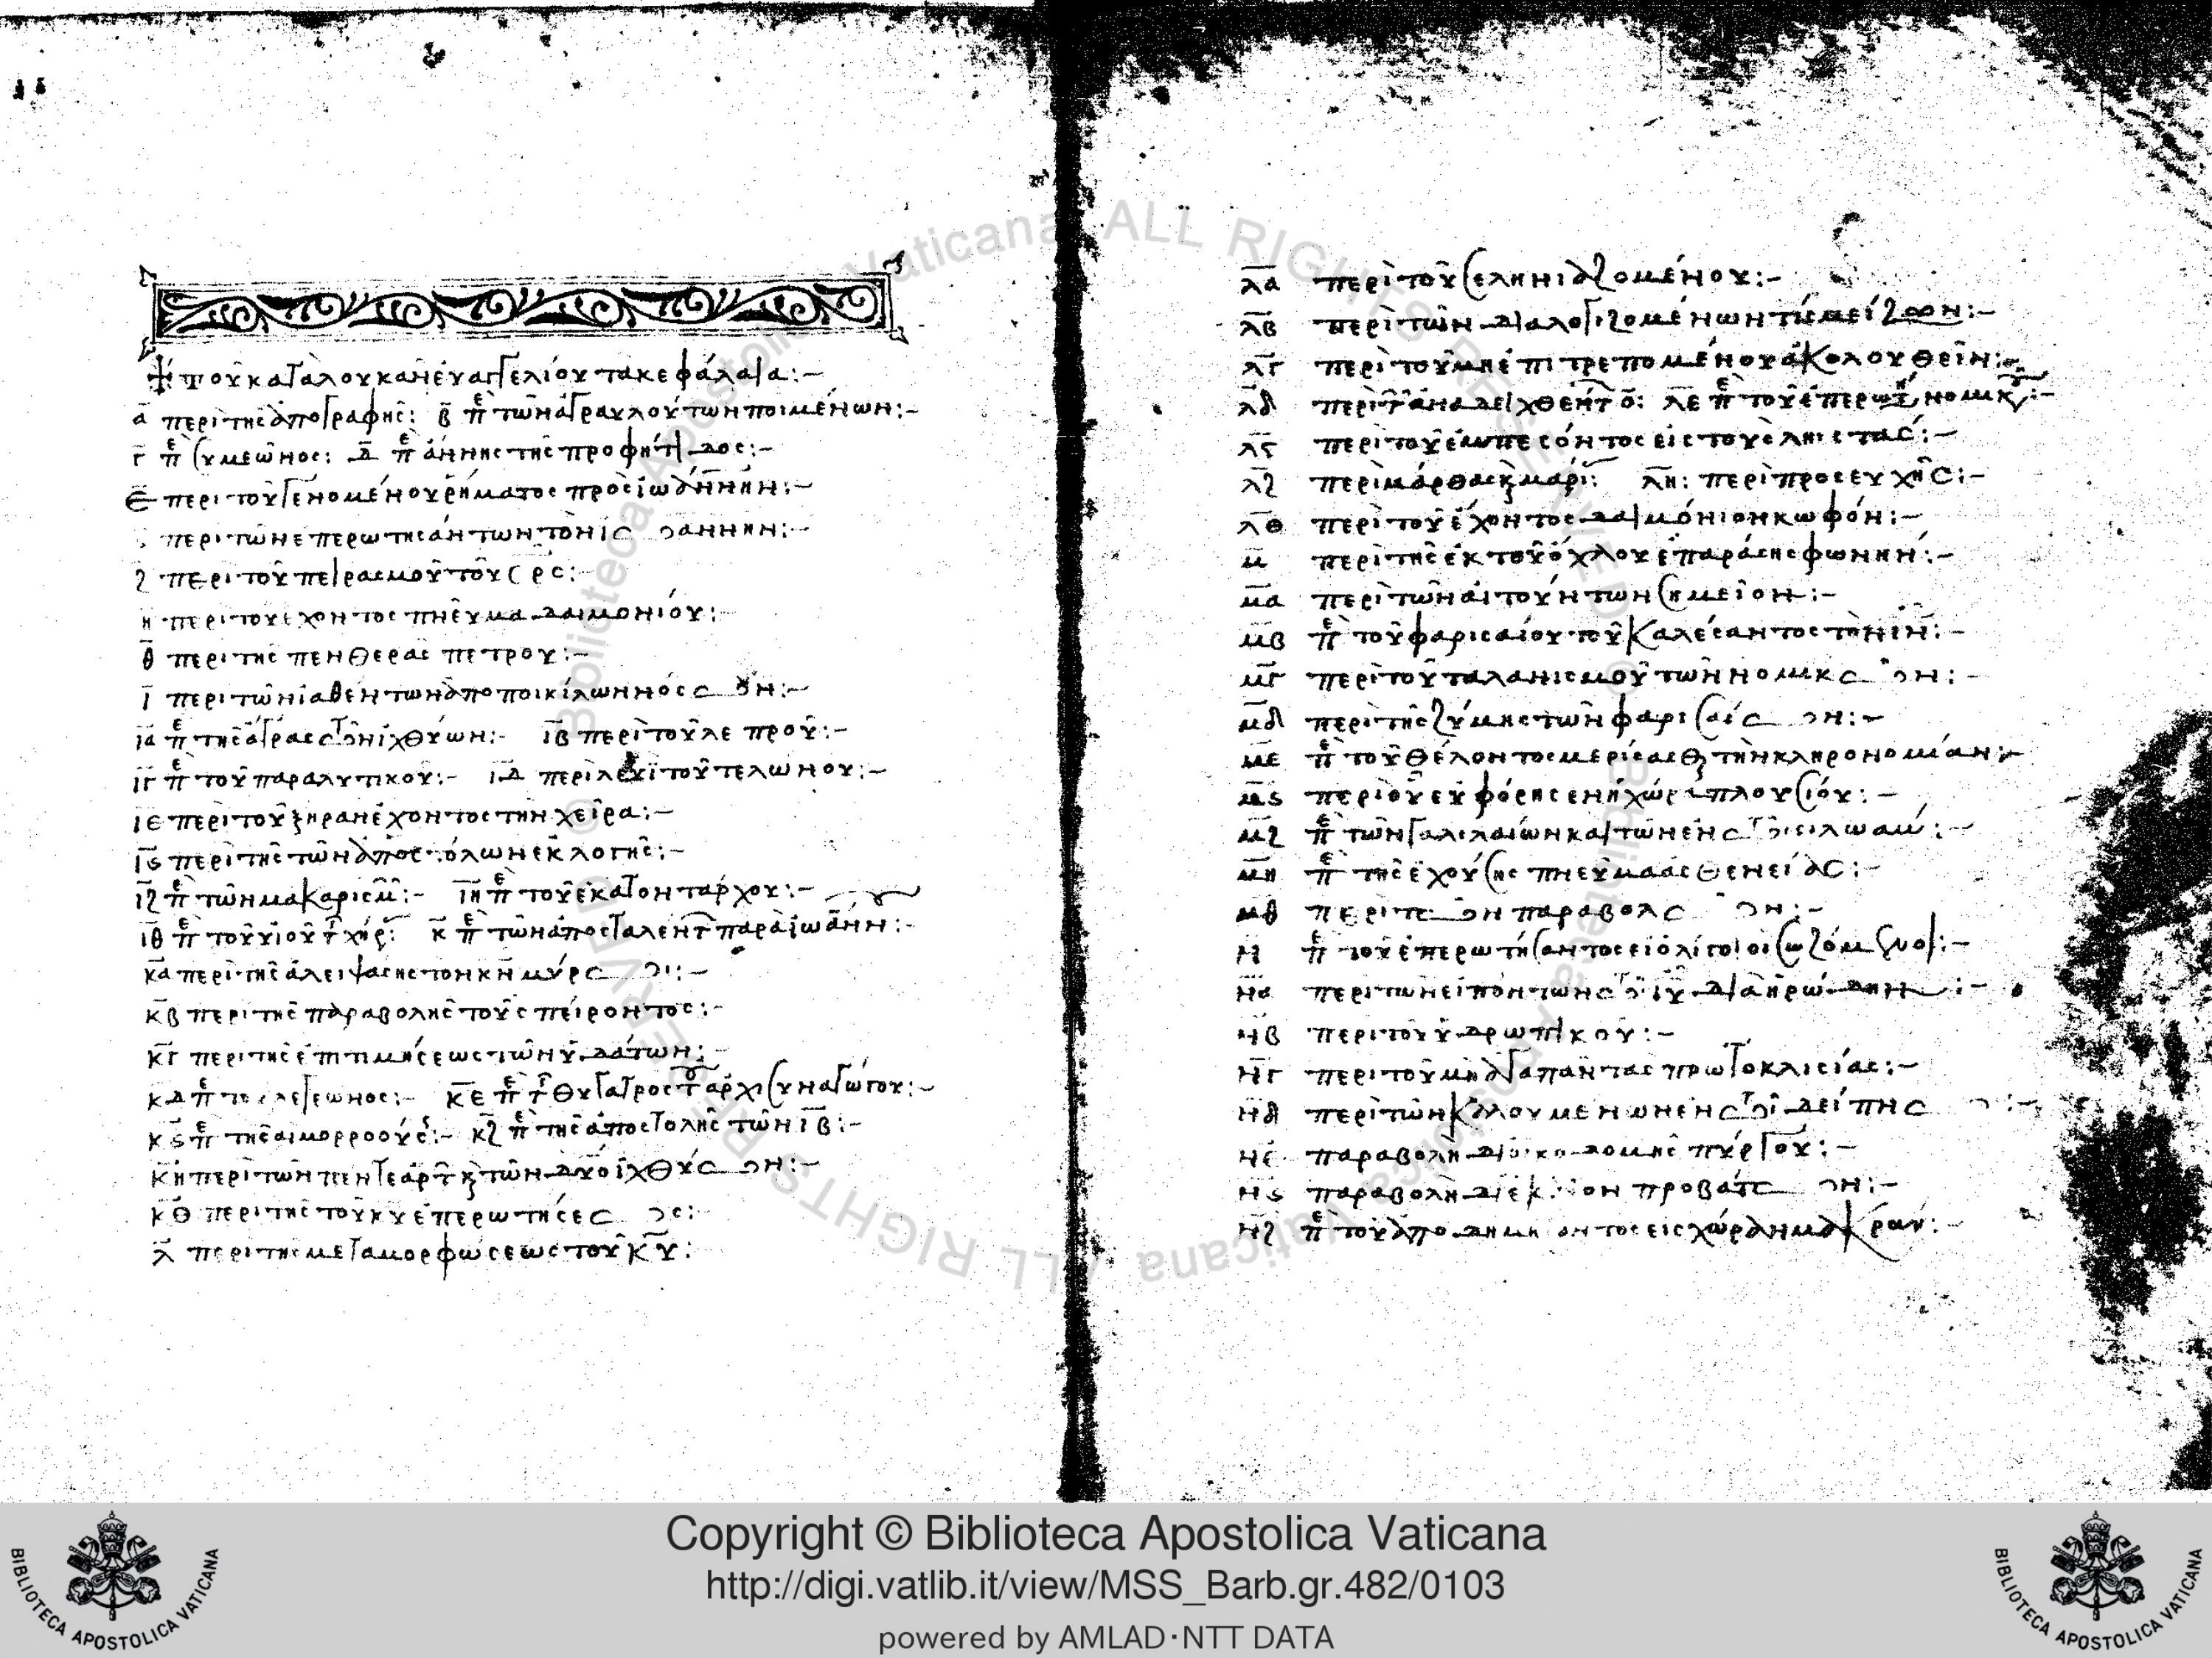 τοῦ κατὰ λουκᾶν ἐυαγγελίου τα κεφάλαια:-
α περι τῆς ἀπογραφῆς: β π̅ε τῶν ἀγραυλούντων ποιμένων:-
γ π̅ε συμεῶνος: δ π̅ε ἄννης της προφήτιδος:-
ε περι τοῦ γενομένου ῥήματος προς ἰωάννην:-
περι τῶν επερωτησάντων τὸν ἰωάννην:-
ζ περι τοῦ πειρασμοῦ τοῦ σρς:-
η περι του εχοντος πνεῦμα δαιμονίου:
θ περι της πενθερᾶς πετρου:-
ι περι τῶν ἰαθέντων ἀπο ποικίλων νόσων:-
ια π̅ε της ἄγρας τῶν ἰχθύων:- ιβ περὶ τοῦ λεπροῦ:-
ιγ π̅ε τοῦ παραλυτικου:- ιδ περι λευὶ τοῦ τελώνου:-
ιε περὶ του ξηραν ἔχοντος την χεῖρα:-
ις περι της τῶν ἀποστόλων ἐκλογῆς:-
ιζ π̅ε τῶν μακαρισμ:- ιη π̅ε τοῦ ἑκατονταρχου:-
ιθ π̅ε τοῦ υἱοῦ τ χήρ: κ π̅ε τῶν ἀποσταλεντ παρὰ ἰωάνν:-
κα περι της ἀλειψασης τον κ̅ν μύρωι:-
κβ περι της παραβολης τοῦ σπείροντος:-
κγ περι της ἐπιτιμήσεως τῶν ὑδάτων:
κδ π̅ε το λεγεωνος:- κε π̅ε τ θυγατρος τ ἀρχισυναγώγου:-
κς π̅ε της αιμορροούς:- κζ π̅ε της ἀποστολῆς τῶν ιβ:-
κη περι τῶν πεντε ἀρτ κ τῶν δυο ἰχθύων:-
κθ περι της του κ̅υ ἐπερωτήσεως:
λ περι της μεταμορφώσεως τοῦ κ̅υ:
λα περὶ τοῦ σεληνιαζομένου:-
λβ περὶ τῶν διαλογιζομένων τίς μείζων:-
λγ περὶ τοῦ μη ἐπιτρεπομένου ἀκολουθεῖν:
λδ περὶ τ ἀναδειχθέντ ο: λε π̅ε τοῦ ἐπερωτ νομικ:-
λς περι του ἐμπεσόντος εἰς τους λῃστας:-
λζ περὶ μάρθας κ μαρί: λη: περὶ προσευχῆς:-
λθ περὶ τοῦ ἔχοντος δαιμόνιον κωφόν:-
μ περὶ της ἐκ τοῦ ὄχλου ἐπαράσης φωνήν:-
μα περὶ τῶν αἰτούντων σημεῖον:-
μβ π̅ε τοῦ φαρισαίου τοῦ καλέσαντος τὸν ι̅ν:-
μγ περὶ τοῦ ταλανισμοῦ τῶν νομικων:-
μδ περὶ της ζύμης τῶν φαρισαίων:-
με π̅ε τοῦ θέλοντος μερίσασθ την κληρονομίαν:
μς περὶ οὗ εὐφόρησεν ἡ χώρα πλουσίου:-
μζ π̅ε τῶν γαλιλαίων και τῶν ἐν τῶ σιλωαμ:-
μη π̅ε της ἐχούσης πνεῦμα ἀσθενείας:-
μθ περι τῶν παραβολων:-
ν π̅ε του ἐπερωτήσαντος εἰ ὀλίγοι οἱ σωζόμενοι:-
να περι τῶν εἰπόντων τῶ ι̅υ δια ἡρώδην:-
νβ περι τοῦ ὑδρωπικοῦ:-
νγ περι τοῦ μὴ ἀγαπᾶν τας πρωτοκλισίας:-
νδ περὶ τῶν καλουμένων ἐν τῶ δείπνω:-
νε παραβολη δι οικοδομῆς πύργου:-
νς παραβολη δι ἑκατον προβάτων:-
νζ π̅ε τοῦ ἀποδημήσαντος εἰς χώραν μακράν:-
Copyright © Biblioteca Apostolica Vaticana
http://digi.vatlib.it/view/MSS_Barb.gr.482/0103
powered by AMLAD·NTT DATA
BIBLIOTECA APOSTOLICA VATICANA
BIBLIOTECA APOSTOLICA VATICANA